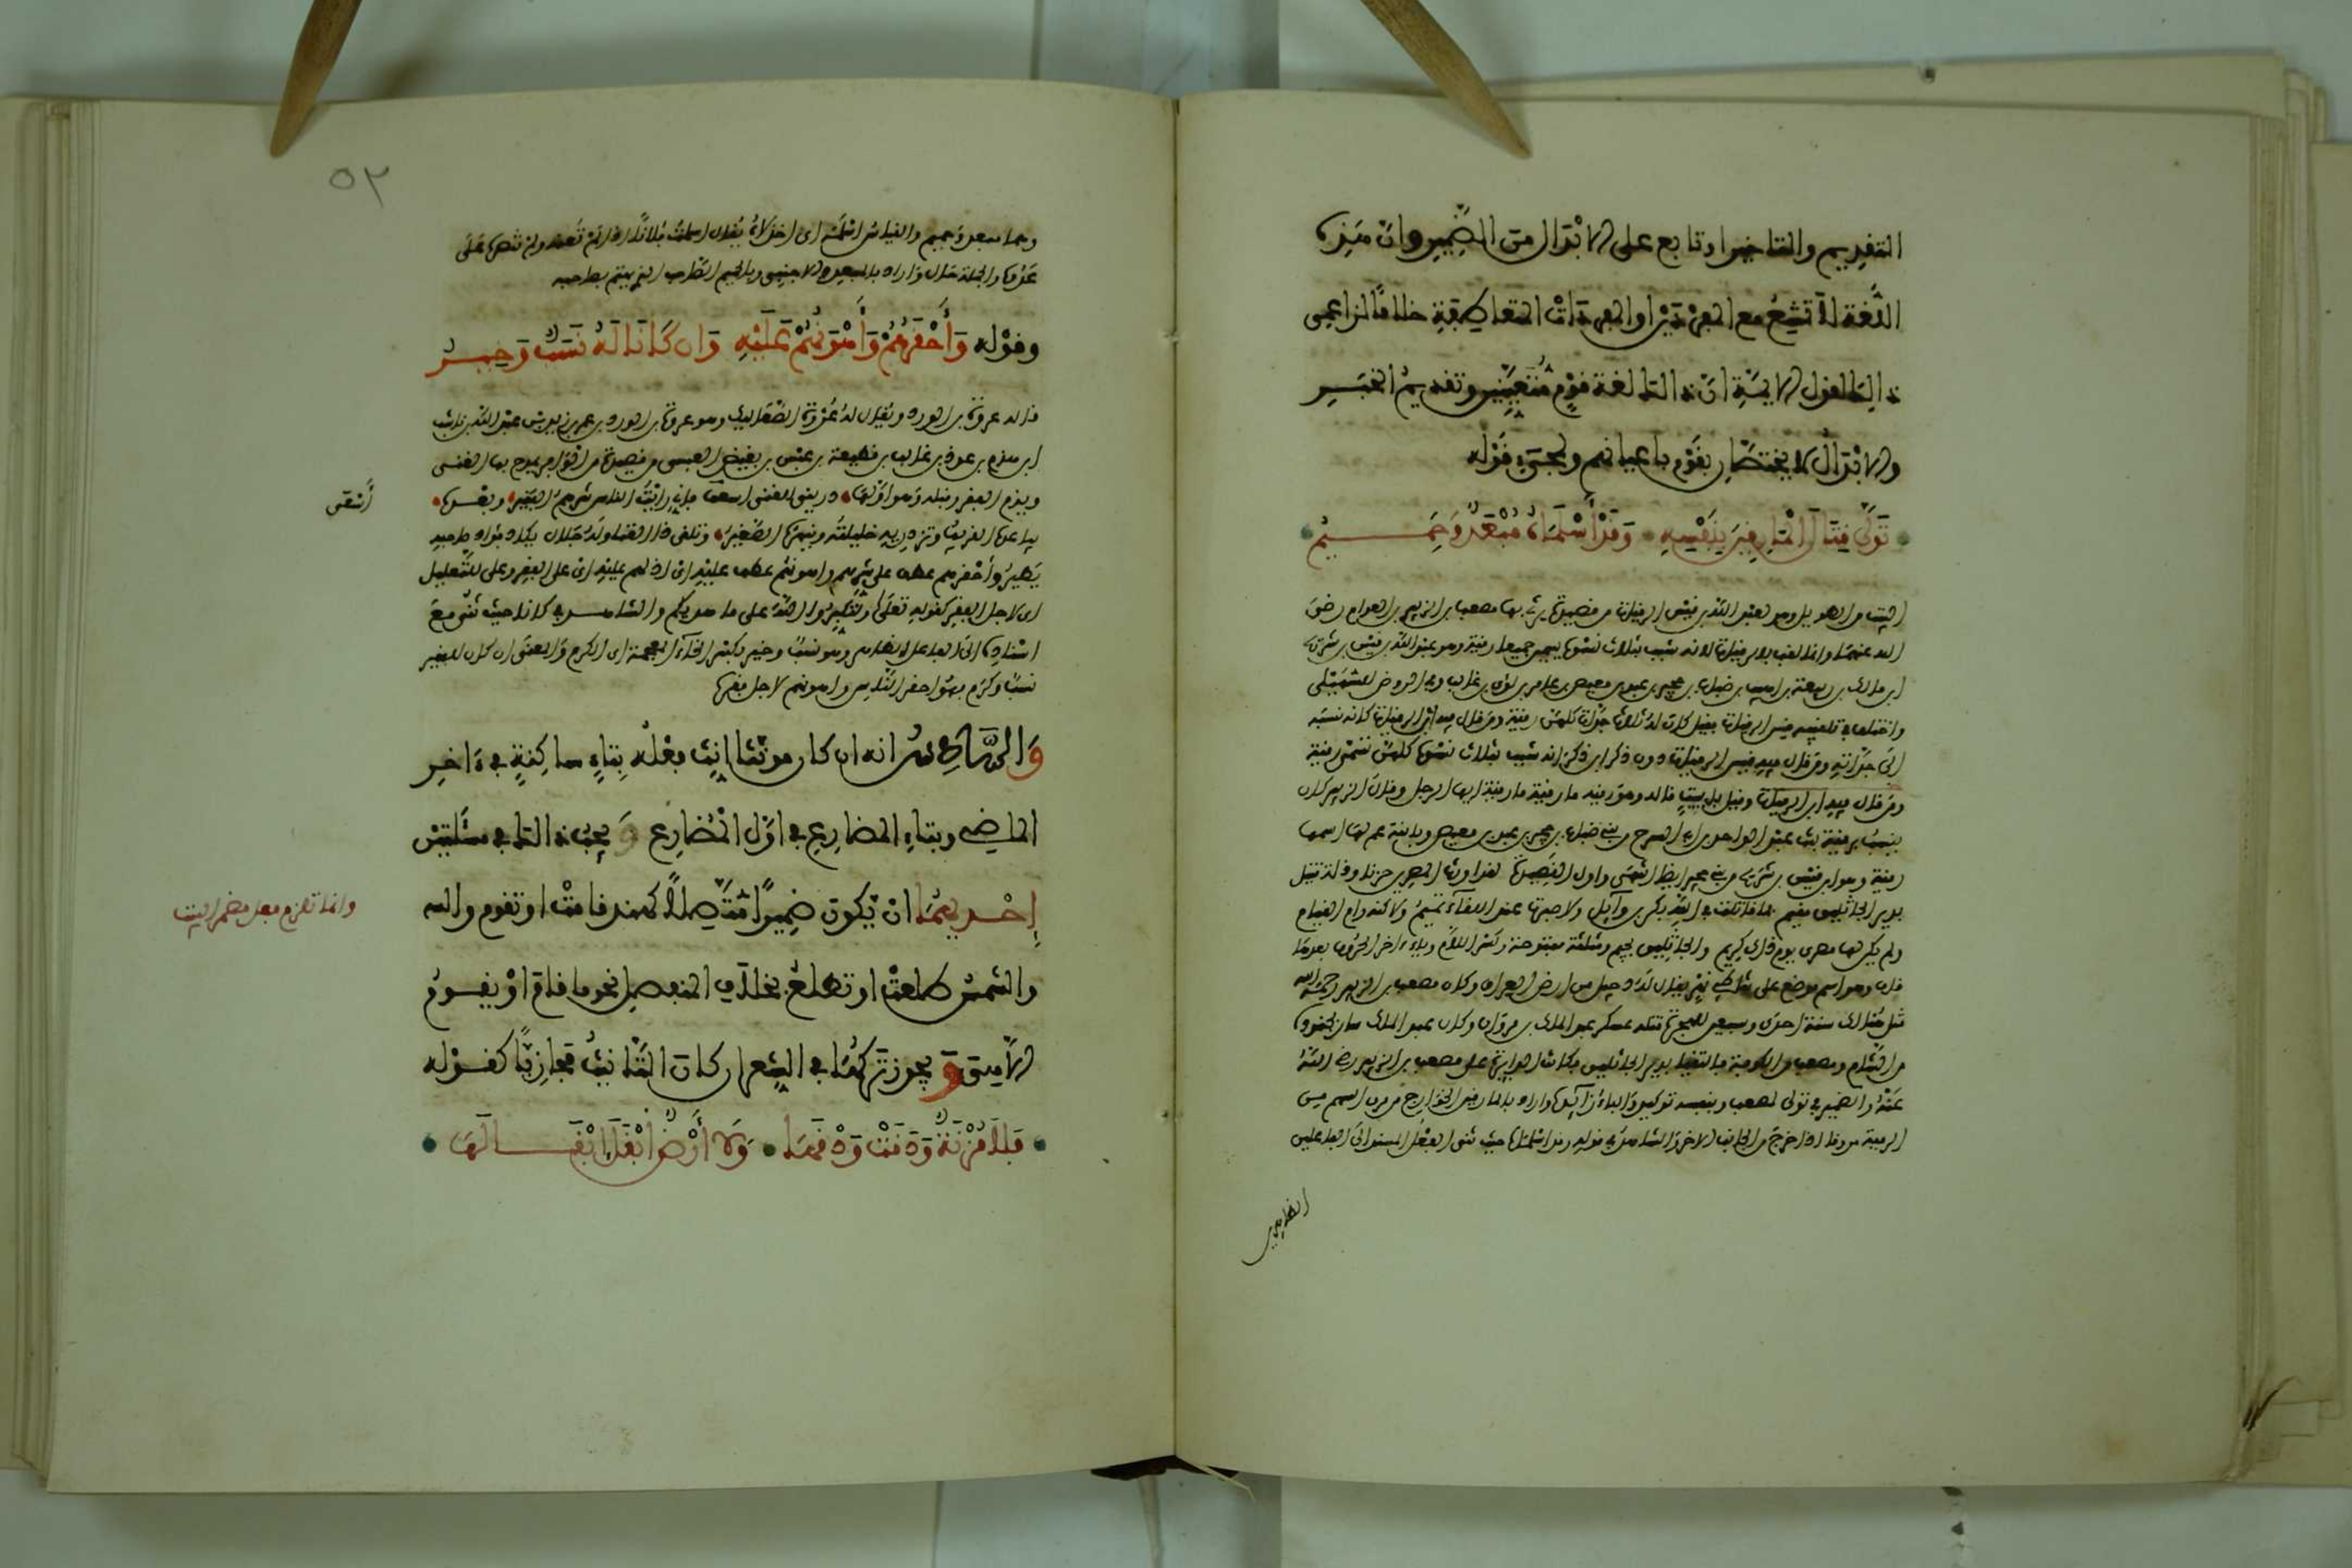 التقديم والتاخير او تابع على الابدال من الضمير وان هذه
اللغة لا تمتنع مع المفردين او المفردات المتعاطفة خلافا لزاعمي
ذلك لقول الايمة ان ذلك لغة قوم معينين وتقديم الخبر
والابدال لا يختصان بقوم باعيانهم ولمجيء قوله
تولى قتال المارقين بنفسه وقد اسلماه مبعد وحميم
البيت من الطويل وهو لعبد الله بن قيس الرقيات من قصيدة يرثي بها مصعب بن الزبير بن العوام رضي
الله عنهما وانما لقب بالرقيات لانه شبب بثلاث نسوة يسمين جميعا رقية وهو عبد الله بن قيس بن شريح
ابن مالك بن ربيعة بن اهيب بن ضباب بن حجير بن عبد بن معيص بن عامر بن لؤي بن غالب وفي الروض للسهيلي
واختلف في تلقيبه قيس الرقيات فقيل كان له ثلاث جدات كلهن رقية ومن قال فيه ابن الرقيات كانه نسبه
الى جداته ومن قال فيه قيس الرقيات دون ذكر ابن ذكر انه شبب بثلاث نسوة كلهن تسمى رقية
ومن قال فيه ابن الرقيات وقيل بل ببيت قاله وهو رقية ما رقية ما رقية ايها الرجل وقال الزبير كان
يشبب برقية بنت عبد الواحد بن ابي السرح من بني ضباب بن حجير بن عبد بن معيص وبابنة عم لها اسمها
رقية وهو ابن قيس بن شريح من بني حجير ايضا انتهى واول القصيدة لقد اورث المصرين حزنا وذلة قتيل
بدير الجاثليق مقيم فما قاتلت في الله بكر بن وائل ولا صبرت عند اللقاء تميم ولاكنه رام القيام
ولم يكن لها مضري يوم ذاك كريم والجاثليق بجيم ومثلثة مفتوحة وكسر اللام وياء اخر الحروف بعدها
قاف وهو اسم موضع على شاطئ نهر يقال له دجيل من ارض العراق وكان مصعب بن الزبير رحمه الله
قتل هنالك سنة احدى وسبعين للهجرة قتله عسكر عبد الملك بن مروان وكان عبد الملك سار بجنوده
من الشام ومصعب من الكوفة فالتقيا بدير الجاثليق فكانت الدايرة على مصعب بن الزبير رضي الله
عنه والضمير في تولى لمصعب وبنفسه توكيد والباء زايدة واراد بالمارقين الخوارج من مرق السهم من
الرمية مروقا اذا خرج من الجانب الاخر والشاهد في قوله وقد اسلماه حيث ثنى الفعل المسند الى الفاعلين
الظاهرين
٥٢
وهما مبعد وحميم والقياس اسلمه اي اخذلاه يقال اسلمت فلانا اذا لم تعنه ولم تنصره على
عدوه والجملة حال واراد بالمبعد الاجنبي وبالحميم القريب الذي يهتم بصاحبه
وقوله وأحقرهم وأهونهم عليه وان كانا له نسب وخير
قاله عروة بن الورد ويقال له عروة الصعاليك وهو عروة بن الورد بن عمرو بن زيد بن عبد الله بن ناشب
ابن هدم بن عوذ بن غالب بن قطيعة بن عبس بن بغيض العبسي من قصيدة من الوافر يمدح بها الغنى
ويذم الفقر وقبله وهو اولها دريني للغنى اسعى فاني رايت الناس شرهم الفقير وبعده
أشقى
يباعده القريب وتزدريه حليلته وينهره الصغير وتلقى ذا الغنى وله جلال يكاد فؤاد صاحبه
يطير وأحقرهم عطف على شرهم واهونهم عطف عليه اي اذلهم عليه اي على الفقر وعلى للتعليل
اي لاجل الفقر كقوله تعالى ولتكبروا الله على ما هديكم والشاهد في كانا حيث ثني مع
اسناده الى الفاعل الظاهر وهو نسب وخير بكسر الخاء المعجمة اي الكرم والمعنى ان كان للفقير
نسب وكرم فهو احقر الناس واهونهم لاجل فقره
والرابع انه ان كان مونثا انث فعله بتاء ساكنة في ءاخر
الماضي وبتاء المضارع في اول المضارع ويجب ذلك في مسئلتين
إحديهما ان يكون ضميرا متصلا كهند قامت او تقوم والله
وانما تلزم فعل مضمر البيت
والشمس طلعت او تطلع بخلاف المنفصل نحو ما قام او يقوم
الا هي ويجوز تركها في الشعر ان كان التانيث مجازيا كقوله
فلا مزنة ودقت ودقها ولا أرض ابقل ابقالها